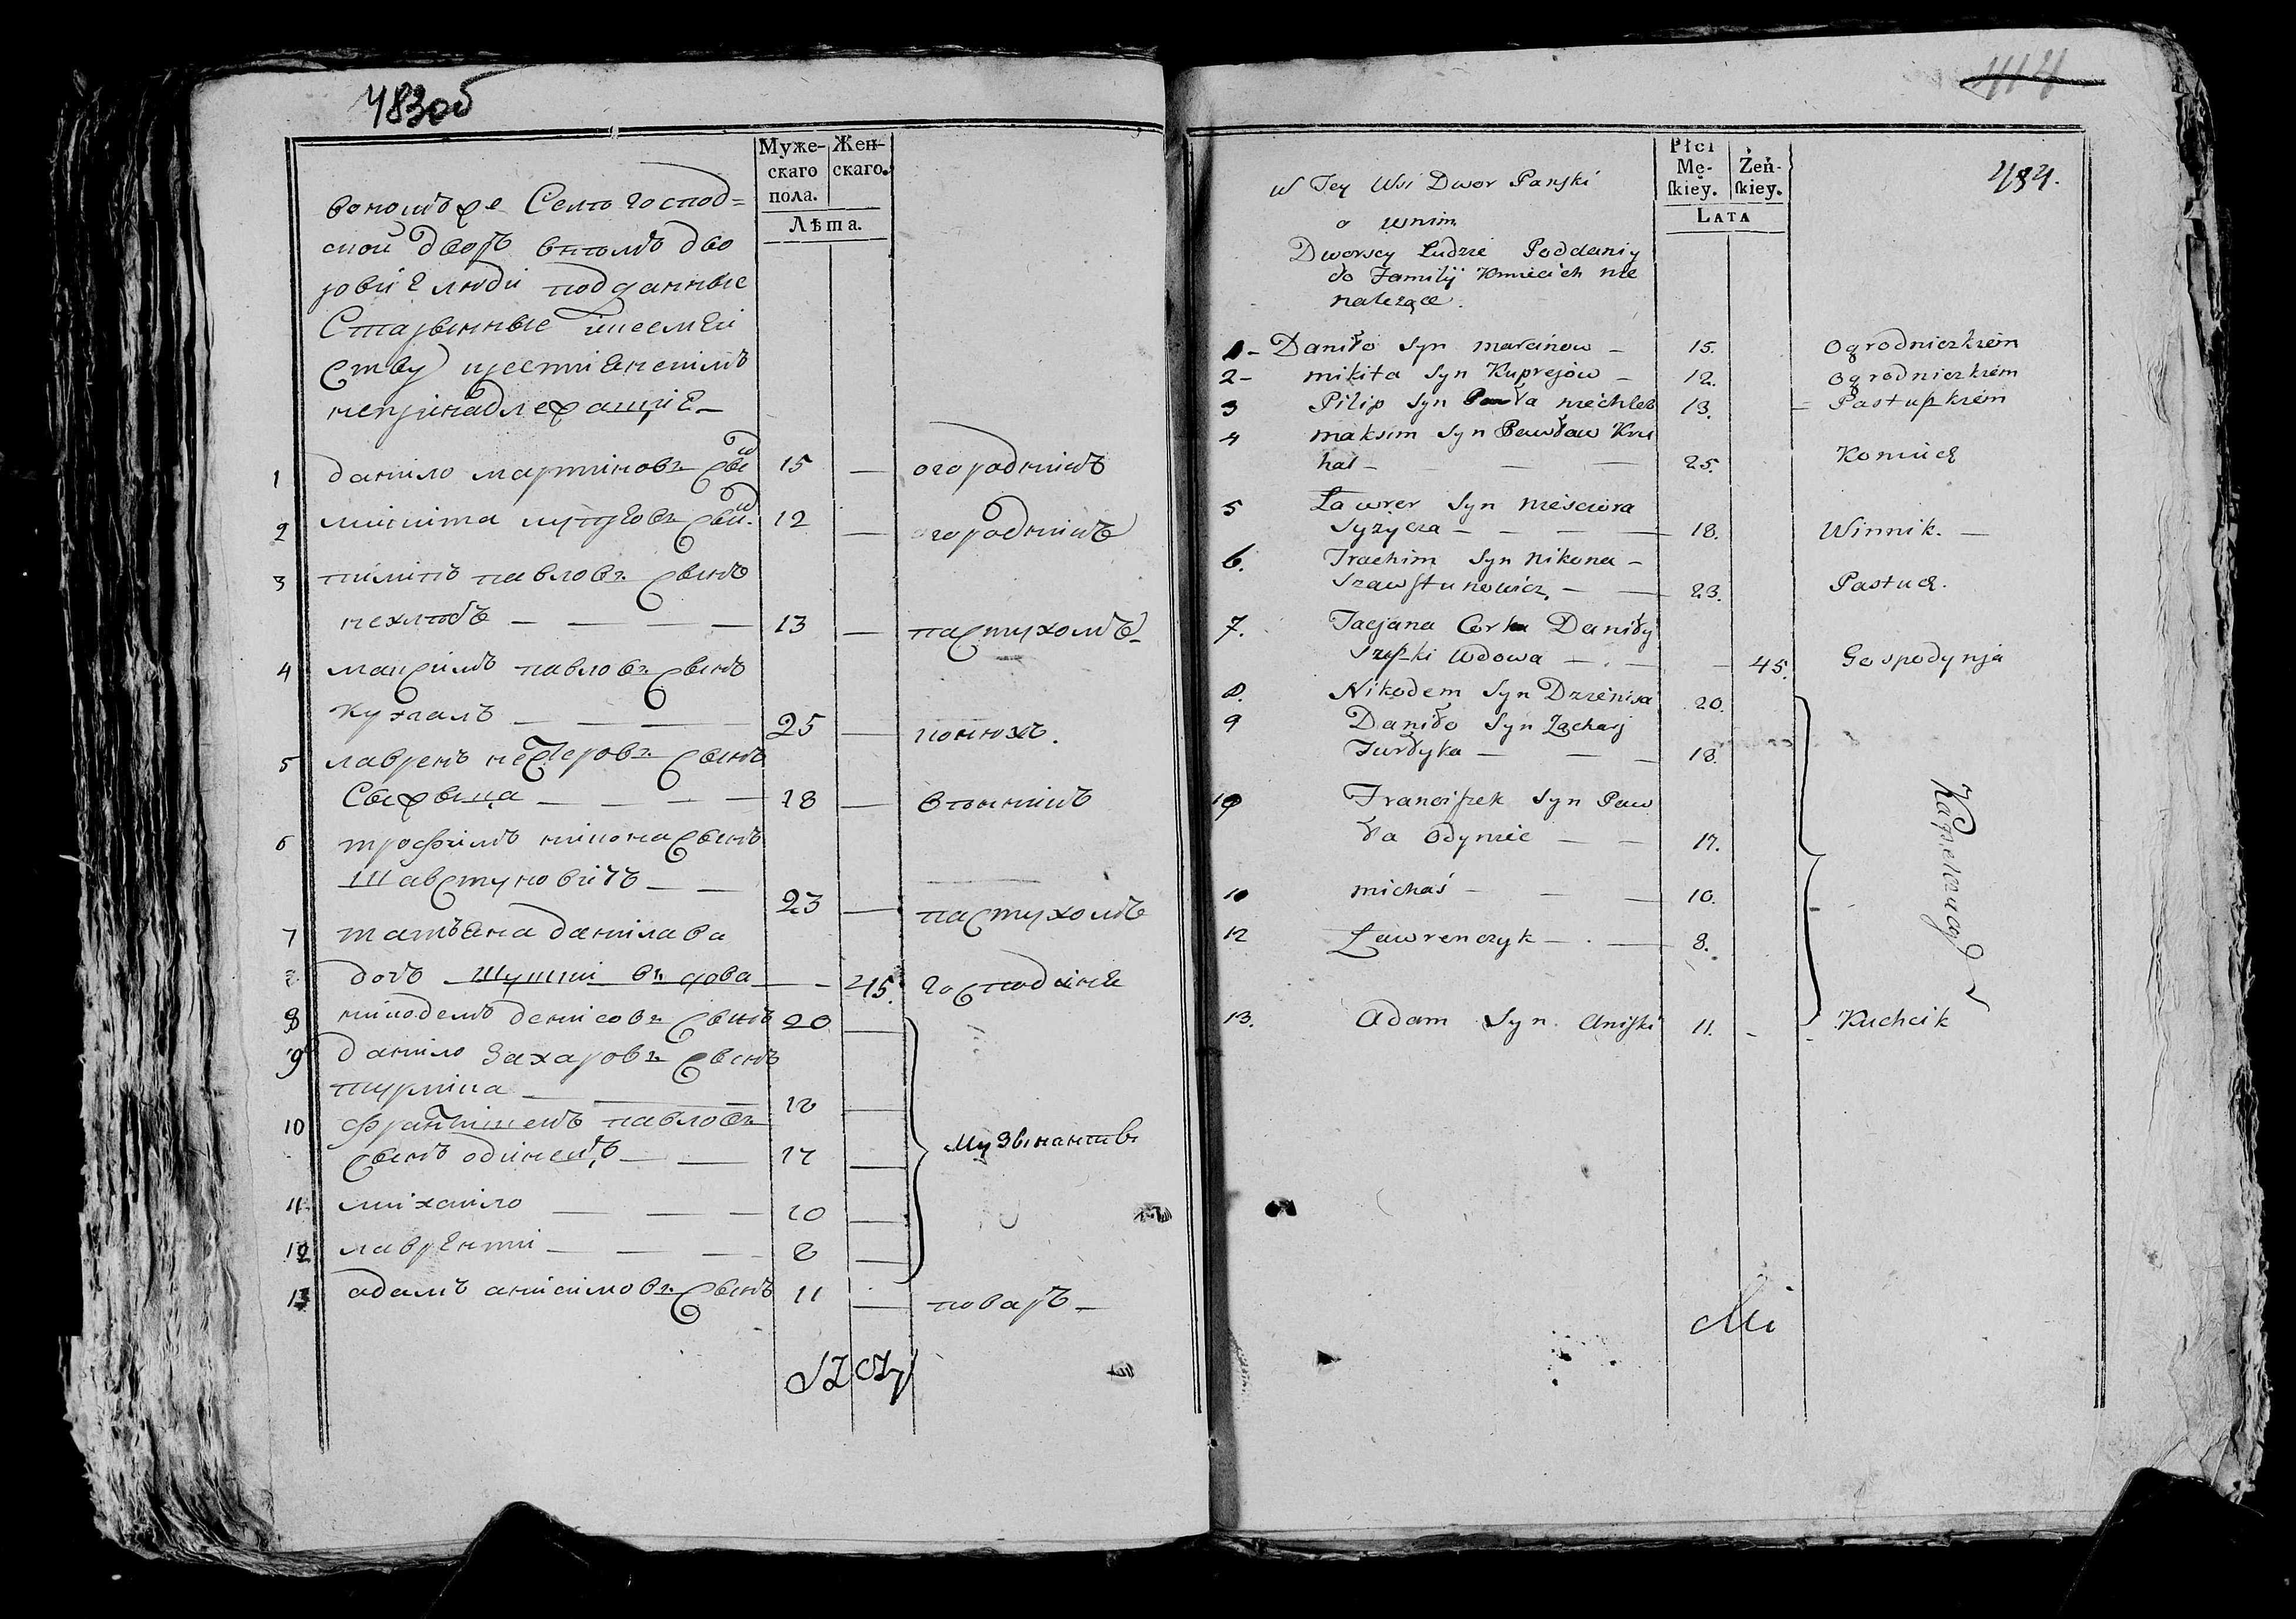 483об
Муже-
скаго
пола.
Жен-
скаго.
Лѣта.
вономъже Селѣ господ=
ской дворъ внтомъ дво
ровие люди подданные
Ствy крестиенскимъ
непринадлежащие
1 данило мартиновъ сынъ 15 — огородникъ
2 микита купреевъ сынъ 12 — огородникъ
3 пилипъ павловъ сынъ
нехлебъ — — — 13 — пастухомъ
4 максимъ павловъ сынъ
кухаль — — — 25 — конюхъ.
5 лавренъ несцеровъ сынъ
Сыжыца — — — — 18 — винникъ
6 трофимъ никона сынъ
Шавстуновичъ — — 23 — пастухомъ
7 татьяна данилава
дочъ Шупки вдова — — 45. господиня
8 никодемъ денисовъ сынъ 20 —
9 данило Захаровъ сынъ
журлика — — 18 —
10 францишекъ павловъ
сынъ одинецъ — — 17 —
Музыканты
11 михаило — — — 10 —
12 лаврентии — — — 8 —
13 адамъ анисимовъ сынъ 11 — поваръ —
414
484.
Płci
Mę-
skiey.
Żeń-
skiey.
Lata
W Tey Wsi Dwor Panski
a wnim
Dworscy Ludzie Poddaniy
do Familij Kmiecich nie
należące.
1 - Daniło Syn marcinow — 15. Ogrodniczkiem
2 - mikita Syn Kuprejów — 12. Ogrodniczkiem
3 Pilip Syn Pawła niechleb 13. Pastuszkiem
4 maksim Syn Pawław Ku
hal — — — 25. Koniuch
5 Ławrer Syn nieściora
Syżycza — — — 18. Winnik. —
6. Trachim Syn Nikona —
Szawstunowicz, — — 23. Pastuch.
7. Tacjana Corka Daniły
Szupki Wdowa — . — — 45. Gospodynja
8. Nikodem Syn Dzienisa 20.
9 Daniło Syn Zachary
Żurłyka — — — 18.
10 Franciszek Syn Paw
ła Odyniec — — 17.
Kapelczycy
10 michaś — — — 10.
12 Ławrenczyk — . — 8.
13. Adam Syn Aniski 11. - Kuchcik
Mi